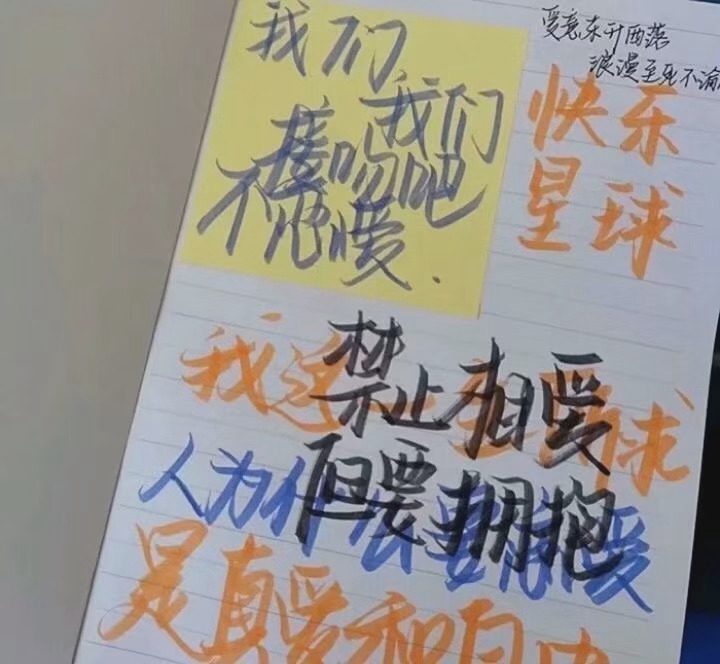 爱意东升西落
浪漫至死不渝
我们
我们
接吻吧
不爱.
快乐
星球
我这球
禁止相爱
人为什么要爱
但要拥抱
是真爱和自由